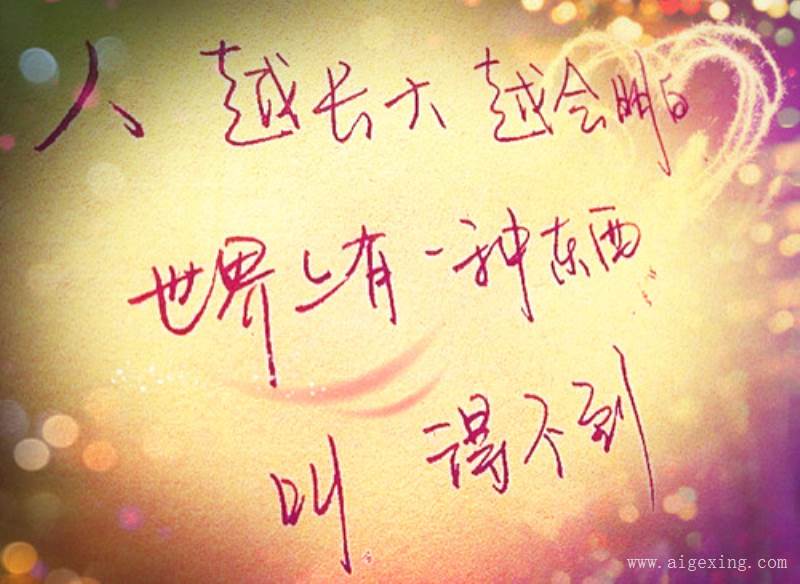 人 越长大 越会明白
世界上有一种东西
叫 得不到
www.aigexing.com